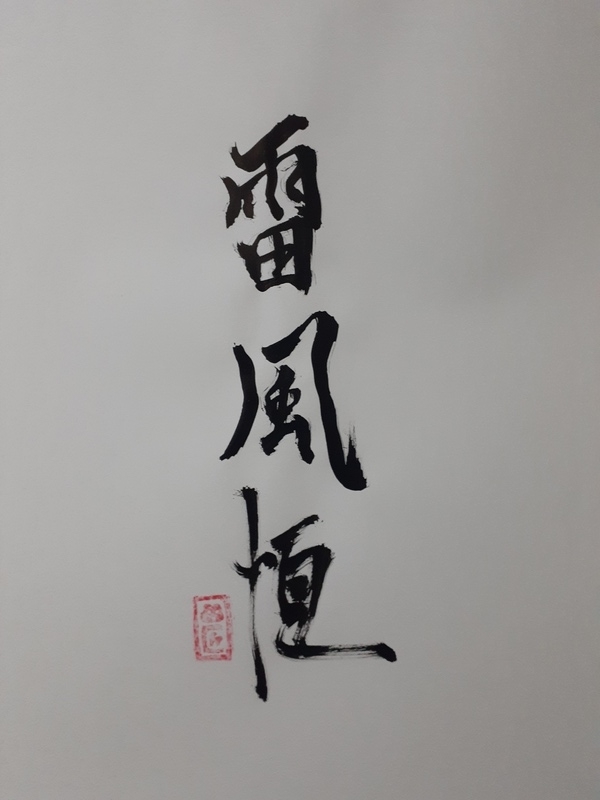 雷風恒